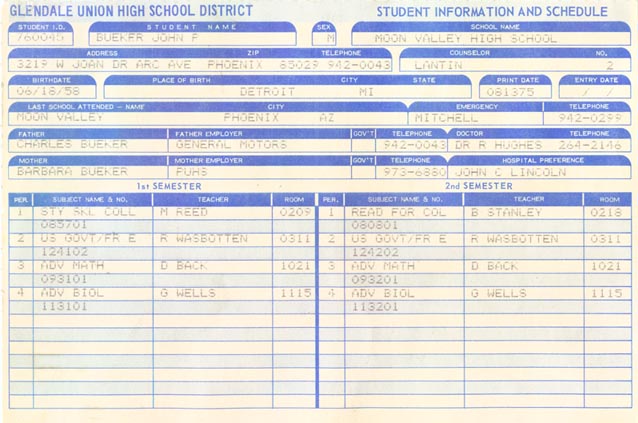 GLENDALE UNION HIGH SCHOOL DISTRICT STUDENT INFORMATION AND SCHEDULE
STUDENT I.D. STUDENT NAME SEX SCHOOL NAME
760045 BUEKER JOHN P M MOON VALLEY HIGH SCHOOL
ADDRESS ZIP TELEPHONE COUNSELOR NO.
3219 W JOAN DR ARC AVE PHOENIX 85029 942-0043 LANTIN 2
BIRTHDATE PLACE OF BIRTH CITY STATE PRINT DATE ENTRY DATE
06/18/58 DETROIT MI 081375 / /
LAST SCHOOL ATTENDED - NAME CITY EMERGENCY TELEPHONE
MOON VALLEY PHOENIX AZ MITCHELL 942-0299
FATHER FATHER EMPLOYER GOV'T TELEPHONE DOCTOR TELEPHONE
CHARLES BUEKER GENERAL MOTORS 942-0043 DR R HUGHES 264-2146
MOTHER MOTHER EMPLOYER GOV'T TELEPHONE HOSPITAL PREFERENCE
BARBARA BUEKER PUHS 973-6880 JOHN C LINCOLN
1st SEMESTER 2nd SEMESTER
PER. SUBJECT NAME & NO. TEACHER ROOM PER. SUBJECT NAME & NO. TEACHER ROOM
1 STY SKL COLL M REED 0209 1 READ FOR COL B STANLEY 0218
085701 080801
2 US GOVT/FR E R WASBOTTEN 0311 2 US GOVT/FR E R WASBOTTEN 0311
124102 124202
3 ADV MATH D BACK 1021 3 ADV MATH D BACK 1021
093101 093201
4 ADV BIOL G WELLS 1115 4 ADV BIOL G WELLS 1115
113101 113201